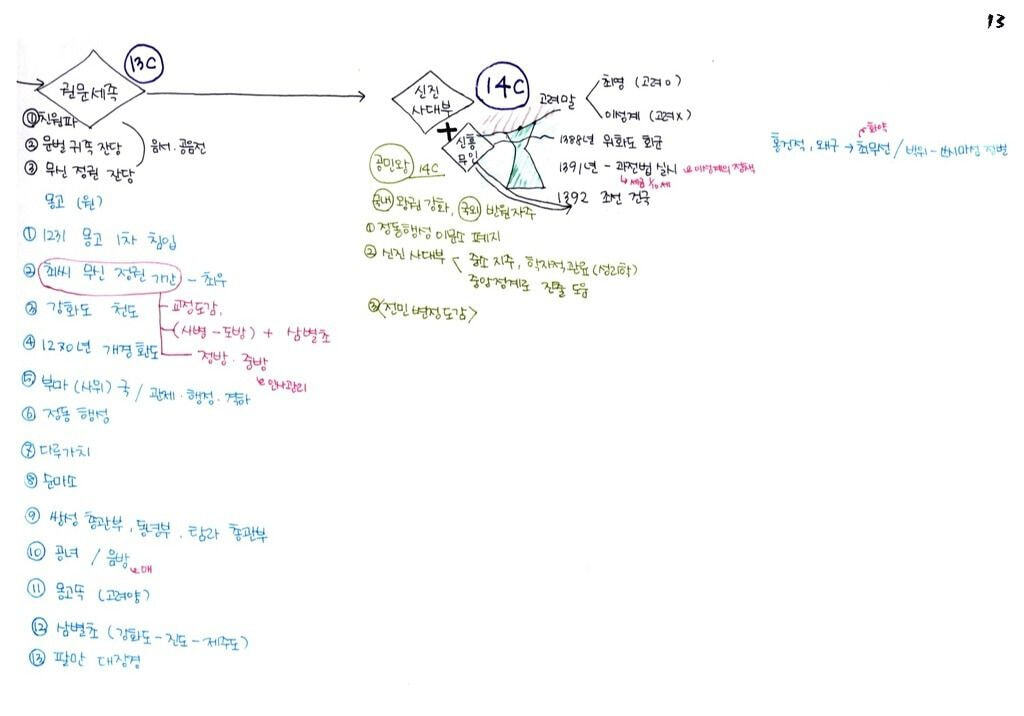 13
13C
권문세족
① 친원파
② 문벌 귀족 잔당
③ 무신 정권 잔당
음서·공음전
몽고 (원)
① 1231 몽고 1차 침입
② 최씨 무신 정권 기간 - 최우
교정도감,
(사병 - 도방) + 삼별초
정방·중방
인사관리
③ 강화도 천도
④ 1270년 개경환도
⑤ 부마 (사위) 국 / 관제·행정·격하
⑥ 정동 행성
⑦ 다루가치
⑧ 순마소
⑨ 쌍성 총관부, 동녕부, 탐라 총관부
⑩ 공녀 / 응방
매
⑪ 몽고풍 (고려양)
⑫ 삼별초 (강화도 - 진도 - 제주도)
⑬ 팔만 대장경
14C
신진 사대부
+
신흥 무인
고려말
최영 (고려 O)
이성계 (고려 X)
1388년 위화도 회군
1391년 - 과전법 실시
이성계의 정책
세금 1/10세
1392 조선 건국
공민왕 14C
국내 왕권 강화, 국외 반원자주
① 정동행성 이문소 폐지
② 신진 사대부
중소 지주, 학자적 관료 (성리학)
중앙정계로 진출 도움
③ <전민변정도감>
화약
홍건적, 왜구 → 최무선 /